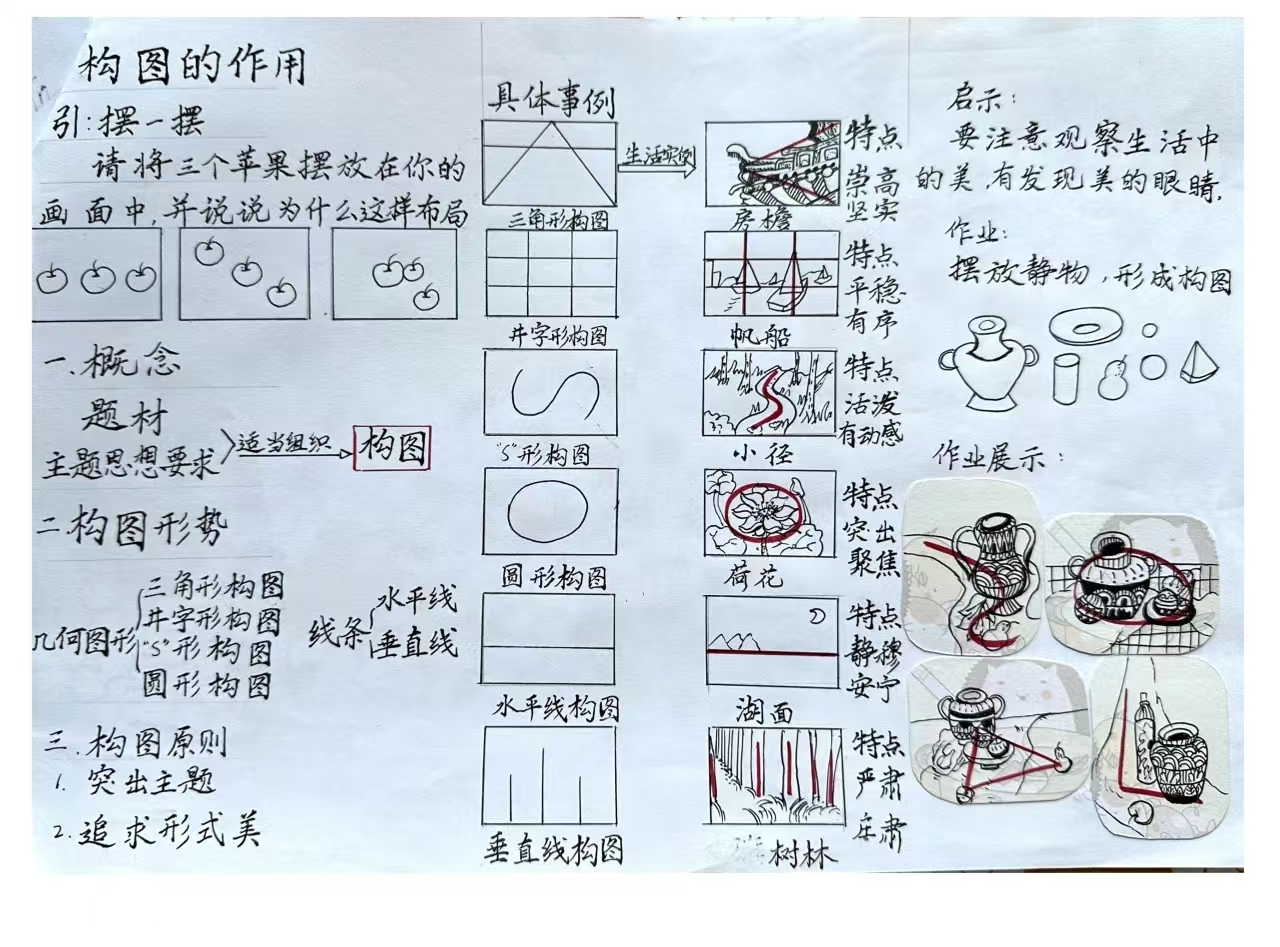 构图的作用
引:摆一摆
请将三个苹果摆放在你的
画面中,并说说为什么这样布局
一.概念
题材
主题思想要求
适当组织
构图
二.构图形势
几何图形
三角形构图
井字形构图
"S"形构图
圆形构图
线条
水平线
垂直线
三.构图原则
1. 突出主题
2. 追求形式美
具体事例
生活实例
三角形构图
房檐
特点
崇高
坚实
井字形构图
帆船
特点
平稳
有序
"S"形构图
小径
特点
活泼
有动感
圆形构图
荷花
特点
突出
聚焦
水平线构图
湖面
特点
静穆
安宁
垂直线构图
树林
特点
严肃
庄肃
启示:
要注意观察生活中
的美,有发现美的眼睛.
作业:
摆放静物,形成构图
作业展示: